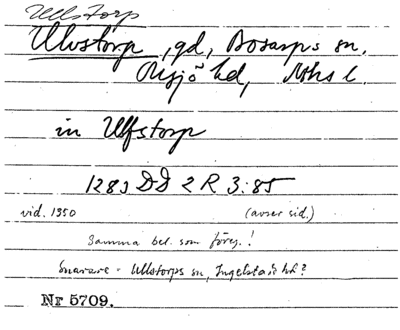 Ullstorp
Ulvstorp, gd, Bosarps sn,
Onsjö hd, Mhs l.
in Ulfstorp
1283 DD 2 R 3:85
vid. 1350 (avser sid.)
Samma bel. som föreg.!
Snarare = Ullstorps sn, Ingelstads hd?
Nr 5709.